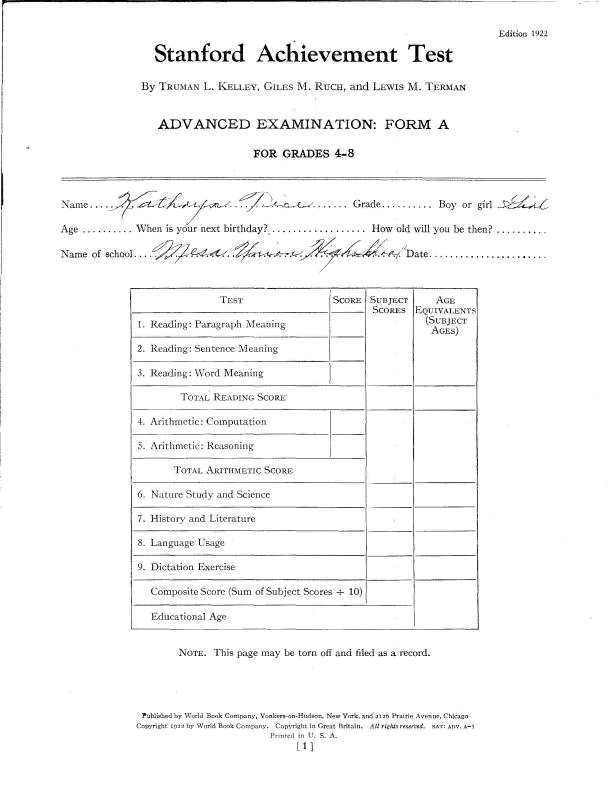 Edition 1922
Stanford Achievement Test
By Truman L. Kelley, Giles M. Ruch, and Lewis M. Terman
ADVANCED EXAMINATION: FORM A
FOR GRADES 4–8
Name.... Kathryn ....... Grade.......... Boy or girl Girl
Age .......... When is your next birthday? .................. How old will you be then? ..........
Name of school.... Mesa Union Highschool Date.......................
Test Score Subject Scores Age Equivalents (Subject Ages)
1. Reading: Paragraph Meaning
2. Reading: Sentence Meaning
3. Reading: Word Meaning
Total Reading Score
4. Arithmetic: Computation
5. Arithmetic: Reasoning
Total Arithmetic Score
6. Nature Study and Science
7. History and Literature
8. Language Usage
9. Dictation Exercise
Composite Score (Sum of Subject Scores ÷ 10)
Educational Age
Note. This page may be torn off and filed as a record.
Published by World Book Company, Yonkers-on-Hudson, New York, and 2126 Prairie Avenue, Chicago
Copyright 1922 by World Book Company. Copyright in Great Britain. All rights reserved. SAT: ADV. A-3
Printed in U. S. A.
[ 1 ]